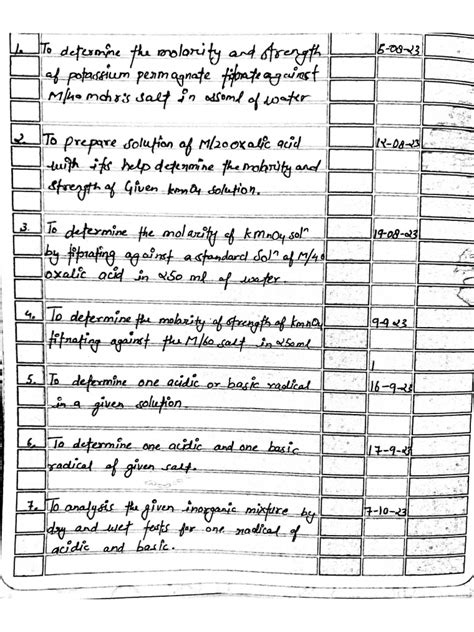 1. To determine the molarity and strength 5-08-23
of potassium permagnate titrate against
M/40 mohr's salt in 250ml of water
2. To prepare solution of M/20 oxalic acid 12-08-23
with its help determine the molarity and
strength of Given kmnO4 solution.
3. To determine the molarity of kMnO4 solⁿ 19-08-23
by titrating against a standard Solⁿ of M/40
oxalic acid in 250 ml of water.
4. To determine the molarity of strength of kmnO4 9-9-23
titrating against the M/60 salt in 250ml
5. To determine one acidic or basic radical 16-9-23
in a given solution.
6. To determine one acidic and one basic 17-9-23
radical of given salt.
7. To analysis the given inorganic mixture by 7-10-23
dry and wet tests for one radical of
acidic and basic.